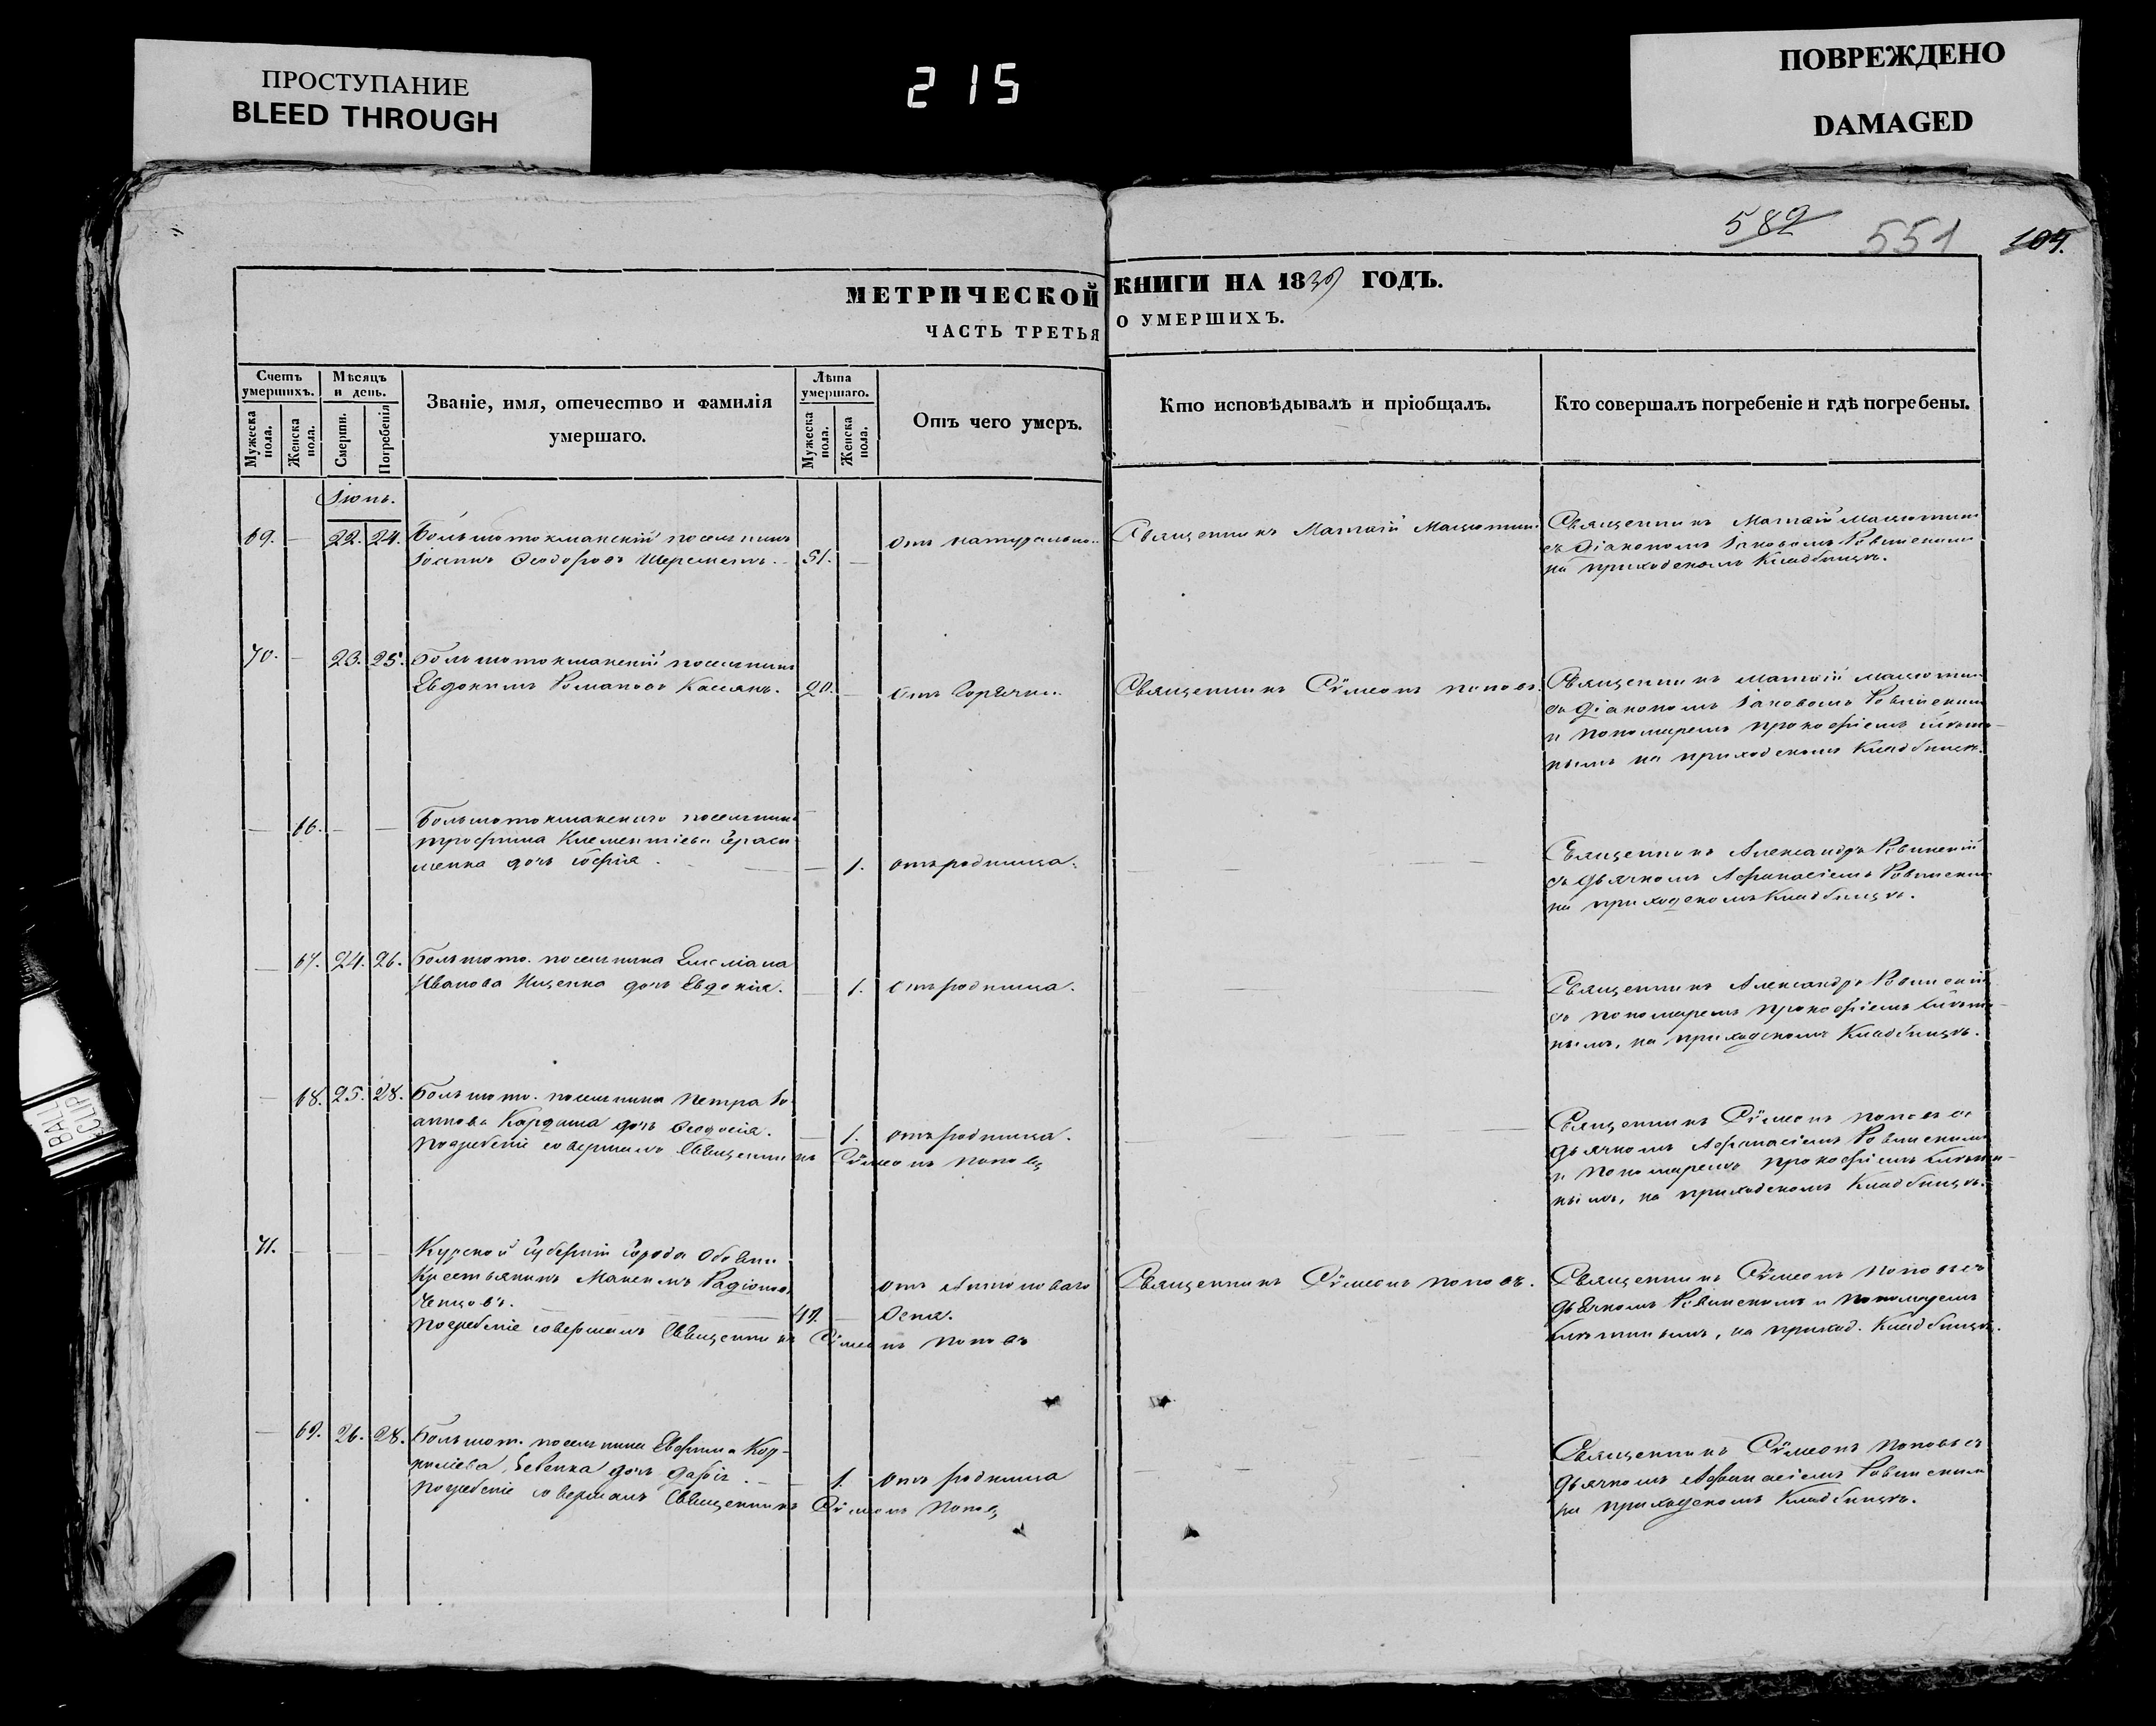 ПРОСТУПАНИЕ
BLEED THROUGH
215
ПОВРЕЖДЕНО
DAMAGED
582
551
МЕТРИЧЕСКОЙ КНИГИ НА 1839 ГОДЪ.
ЧАСТЬ ТРЕТЬЯ О УМЕРШИХЪ.
Счетъ умершихъ.
Мужеска пола.
Женска пола.
Мѣсяцъ и день.
Смерти.
Погребенія
Званіе, имя, отечество и фамилія умершаго.
Лѣта умершаго.
Мужеска пола.
Женска пола.
Отъ чего умеръ.
Кто исповѣдывалъ и пріобщалъ.
Кто совершалъ погребеніе и гдѣ погребены.
Іюнь.
69. 22. 24. Большотокмакскій поселянинъ
Іоаннъ Феодоровъ Шереметъ. 51.
Отъ натуральной
Священникъ Матѳій
Священникъ Матѳій
съ Діакономъ Іаковомъ Ровинскимъ
на приходскомъ Кладбищѣ.
70. 23. 25. Большотокмакскій поселянинъ
Евдокимъ Романовъ Касьянъ. 20.
Отъ Горячки
Священникъ Сѵмеонъ Поповъ.
Священникъ Матѳій
съ Діакономъ Іаковомъ Ровинскимъ
и пономаремъ Прокофіемъ
на приходскомъ Кладбищѣ.
66. Большотокмакскаго поселянина
Трофима Климентіева Гераси
менка дочь Софія. 1. Отъ родимца.
Священникъ Александръ Ровинскій
съ Дьячкомъ Афанасіемъ Ровинскимъ
на приходскомъ Кладбищѣ.
67. 24. 26. Большото. поселянина Емеліана
Иванова Ищенка дочь Евдокія. 1. Отъ родимца.
Священникъ Александръ Ровинскій
съ пономаремъ Прокофіемъ
на приходскомъ Кладбищѣ.
68. 25. 28. Большото. поселянина Петра Іо
аннова Кардаша дочь Феодосія. 1. Отъ родимца.
Погребеніе совершалъ Священникъ Сѵмеонъ Поповъ
Священникъ Сѵмеонъ Поповъ съ
Дьячкомъ Афанасіемъ Ровинскимъ
и Пономаремъ Прокофіемъ
на приходскомъ Кладбищѣ.
71. Курской Губерніи Города Обояни
Крестьянинъ Максимъ Радіоновъ
49.
Отъ
Священникъ Сѵмеонъ Поповъ.
Погребеніе совершалъ Священникъ Сѵмеонъ Поповъ
Священникъ Сѵмеонъ Поповъ съ
Дьячкомъ Ровинскимъ и Пономаремъ
на приход. Кладбищѣ.
69. 26. 28. Большот. поселянина Евфима Кор-
ниліева дочь Дарія. 1. Отъ родимца
Погребеніе совершалъ Священникъ Сѵмеонъ Поповъ
Священникъ Сѵмеонъ Поповъ съ
Дьячкомъ Афанасіемъ Ровинскимъ
на приходскомъ Кладбищѣ.
BALL
CLIP